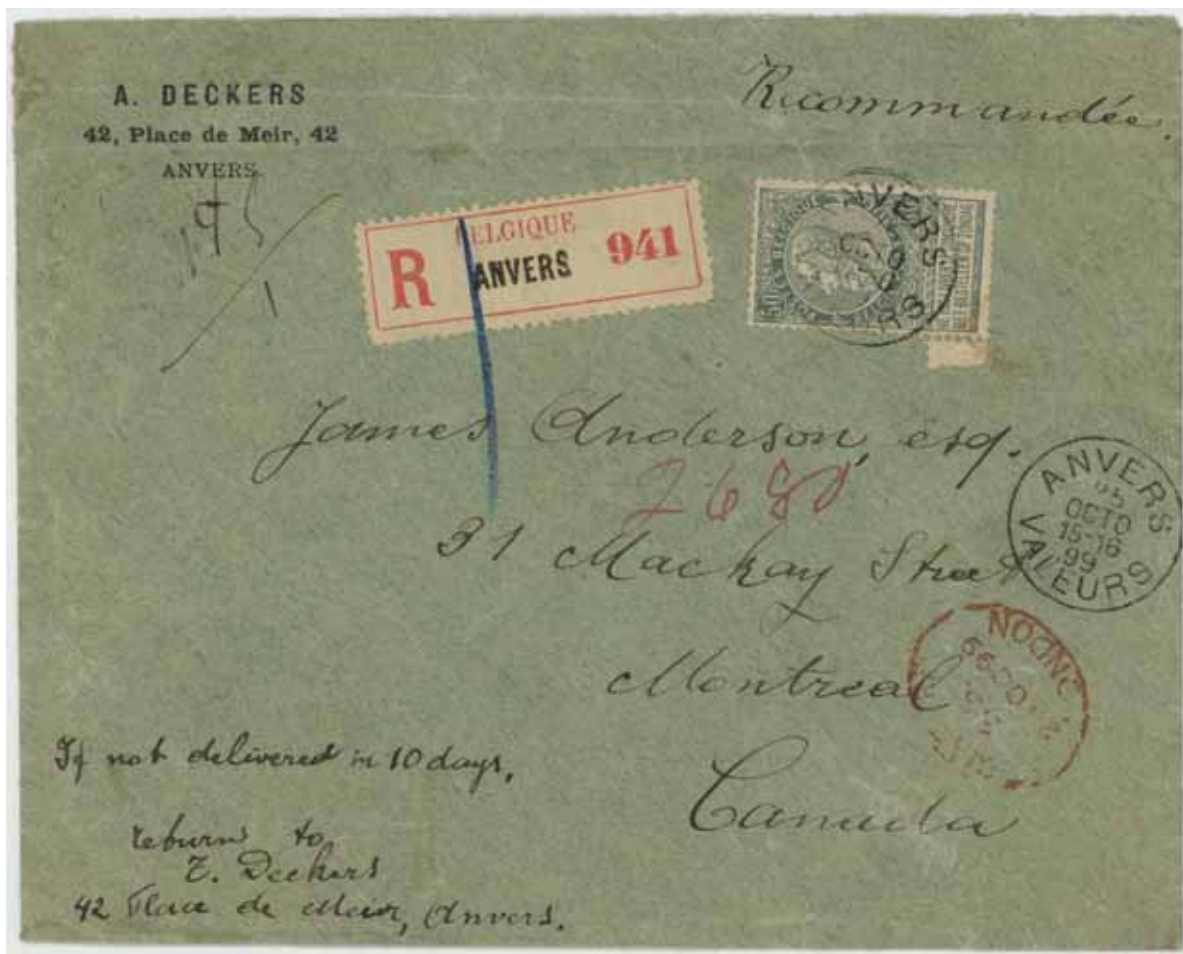 A. DECKERS
42, Place de Meir, 42
ANVERS.
Recommandée.
BELGIQUE
R ANVERS 941
ANVERS
James Anderson, esq.
2680
31 Mackay Street
Montreal
Canada
ANVERS
25
OCTO
15-16
99
VALEURS
LONDON
OC 99
If not delivered in 10 days,
return to
Z. Deckers
42 Place de Meir, Anvers.